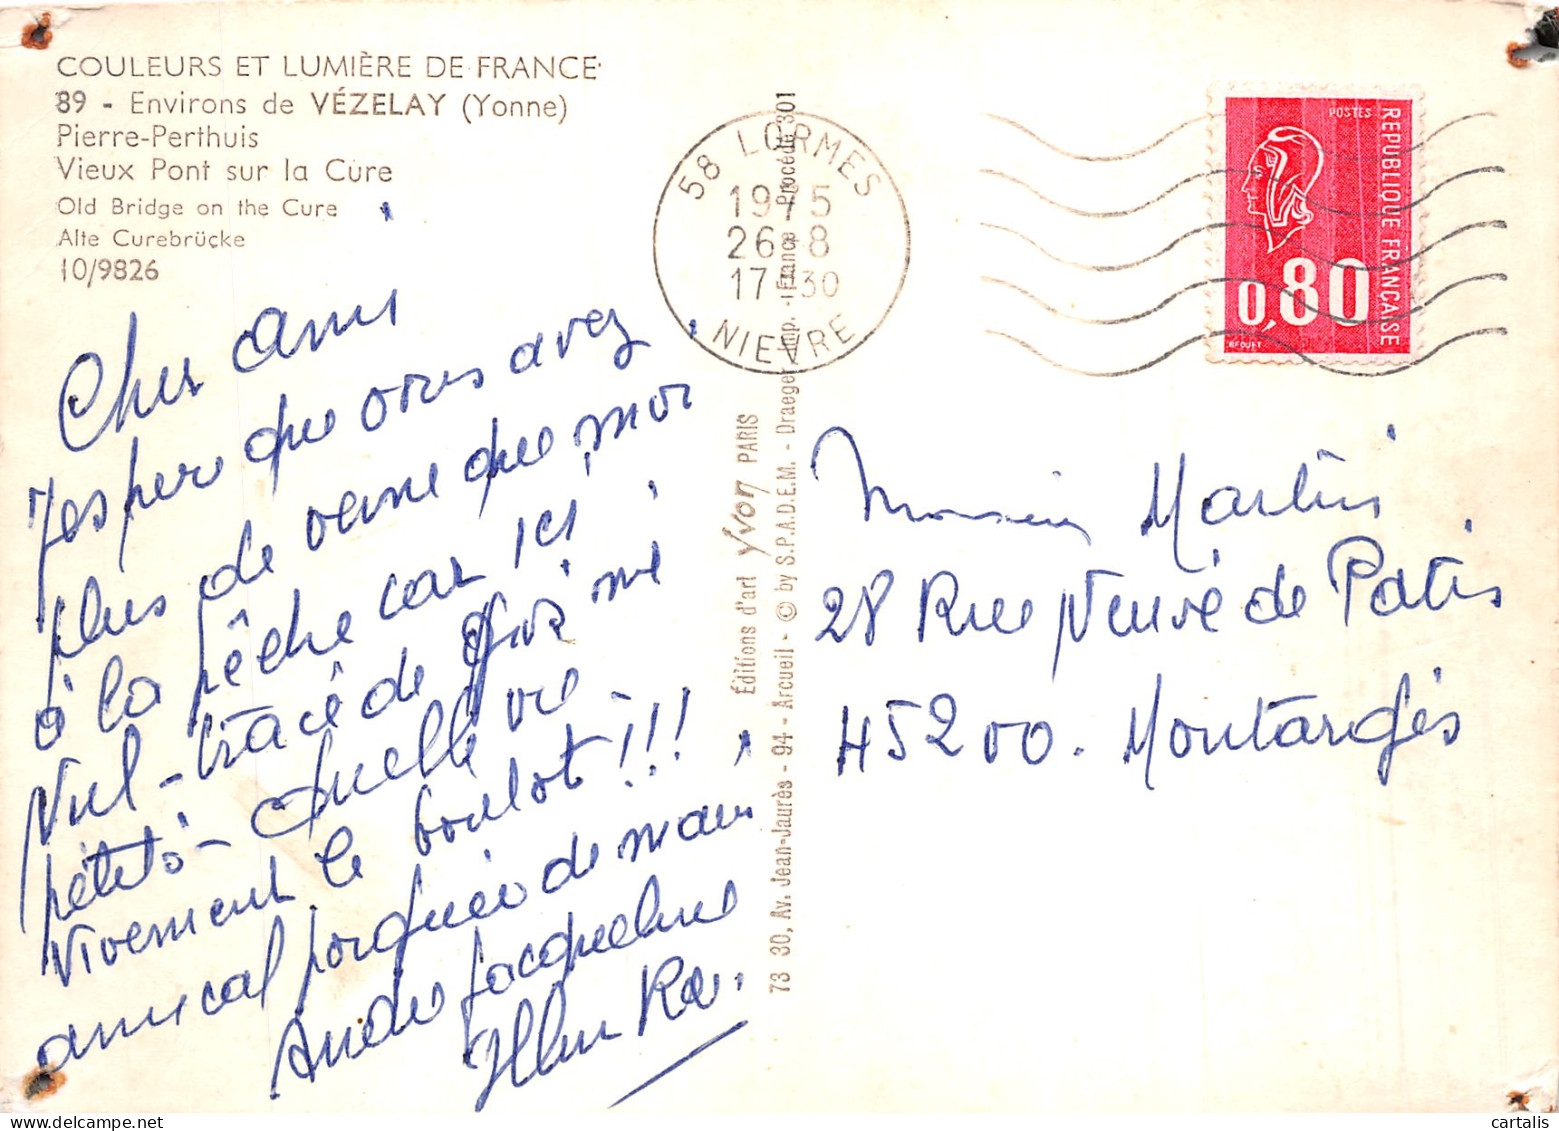 COULEURS ET LUMIÈRE DE FRANCE
89 - Environs de VÉZELAY (Yonne)
Pierre-Perthuis
Vieux Pont sur la Cure
Old Bridge on the Cure
Alte Curebrücke
10/9826
58 LORMES
1975
26-8
17-30
NIEVRE
POSTES
REPUBLIQUE FRANÇAISE
0,80
Cher Ami
J'espere que vous avez
plus de veine que moi
à la pêche car ici
Nul - trace de
petits - Quelle vie
Vivement le boulot !!!
amical poignée de main
André Jacqueline
Éditions d'art Yvon PARIS
73 30, Av. Jean-Jaurès - 94 - Arcueil - © by S.P.A.D.E.M. - Draeger Imp. - France - Procédé 301
Monsieur Martin
28 Rue Neuve de Patis
45200. Montargis
cartalis